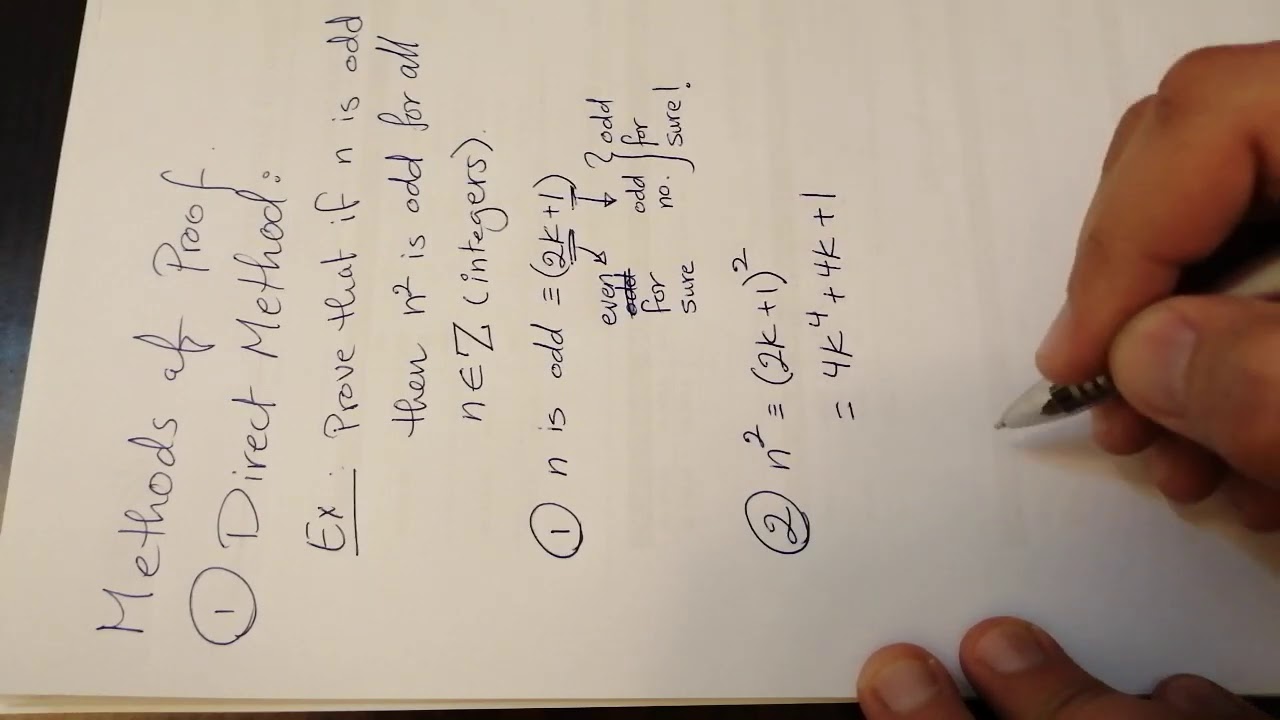 Methods of Proof.
① Direct Method:
Ex: Prove that if n is odd
then n² is odd for all
n∈Z (integers).
① n is odd = (2k+1)
even ↓ } odd
odd odd } for
for no. } sure!
sure
② n² = (2k+1)²
= 4k⁴ + 4k + 1